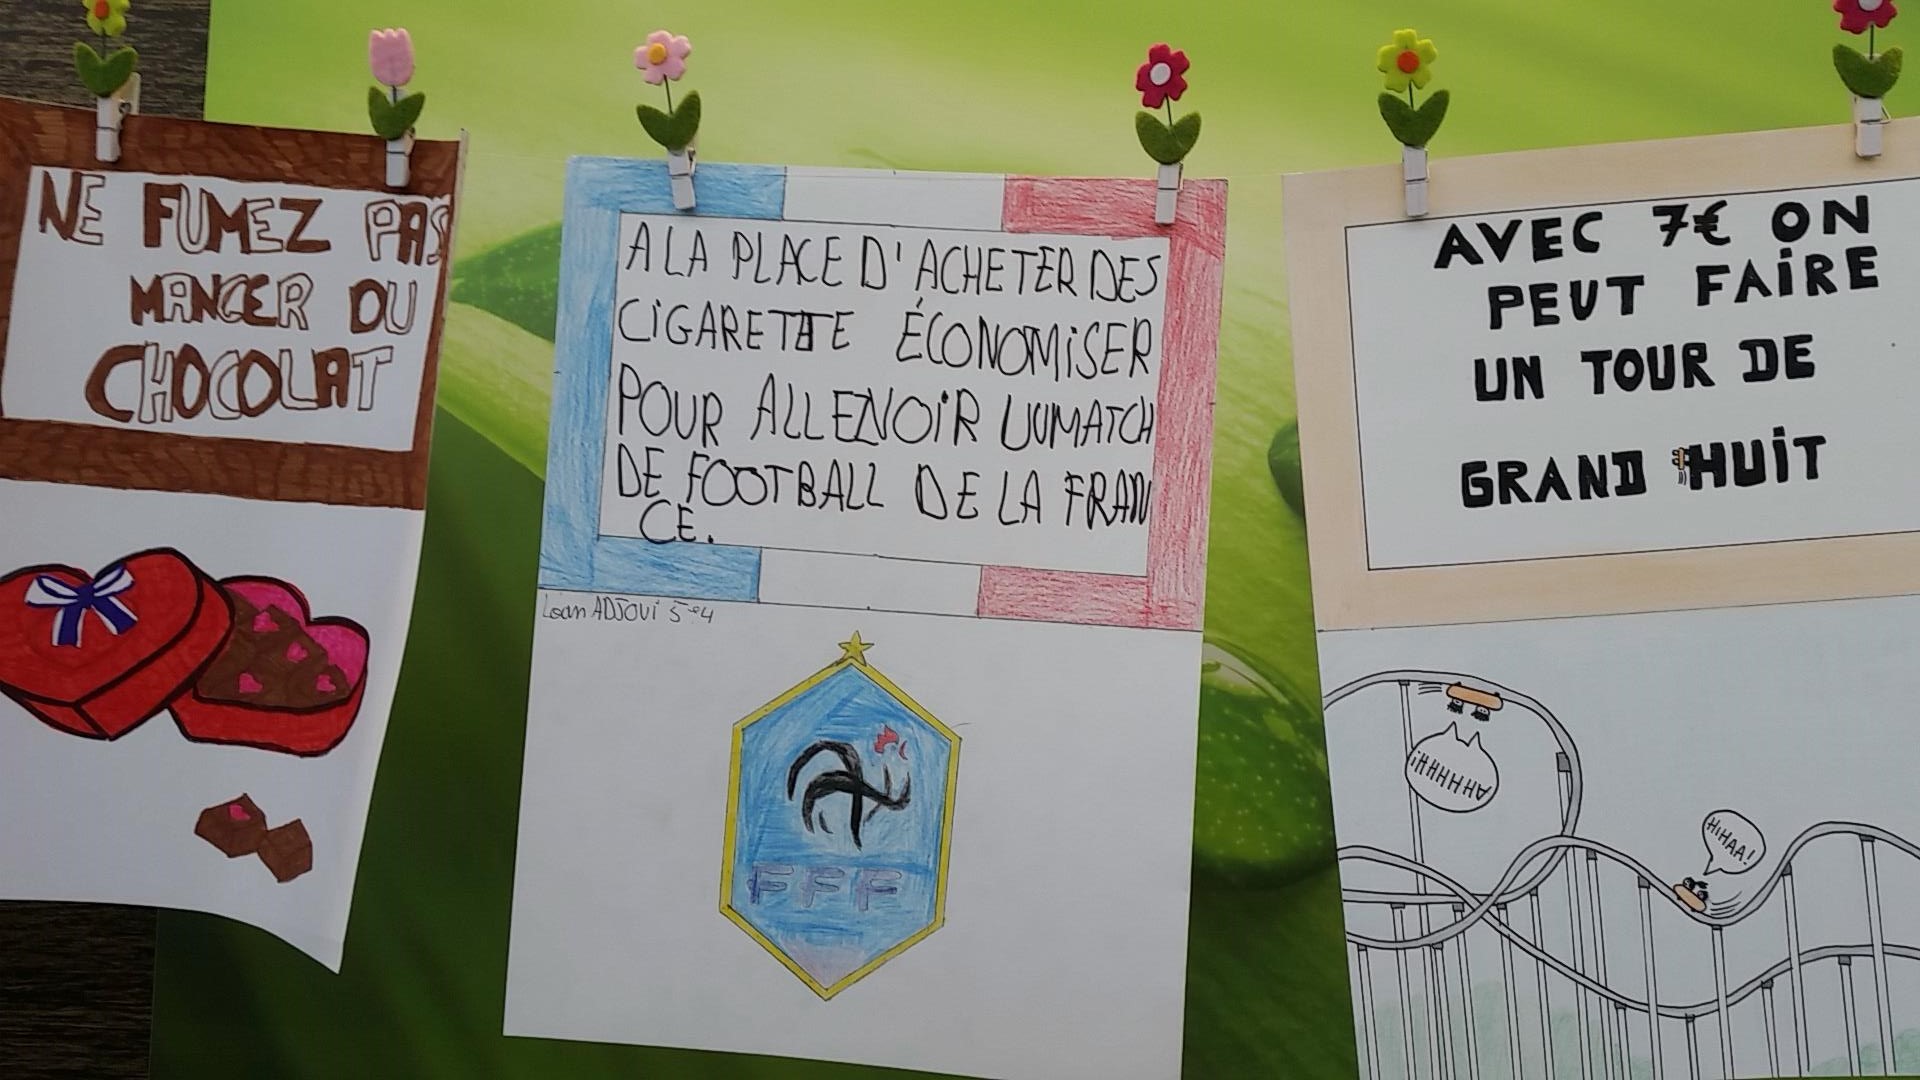 NE FUMEZ PAS
MANGER DU
CHOCOLAT
A LA PLACE D'ACHETER DES
CIGARETTE ÉCONOMISER
POUR ALLEZ VOIR UU MATCH
DE FOOTBALL DE LA FRAN
CE.
Loan ADJOVI 5e4
FFF
AVEC 7€ ON
PEUT FAIRE
UN TOUR DE
GRAND HUIT
AHHHHHH!
HIHAA!